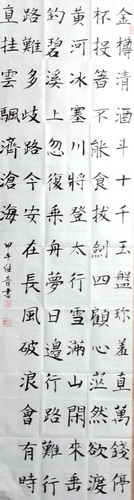 金樽清酒斗十千玉盤珍羞直萬錢停
杯投箸不能食拔劍四顧心茫然欲渡
黃河冰塞川將登太行雪滿山閑來垂
釣碧溪上忽復乘舟夢日邊行路難行
路難多歧路今安在長風破浪會有時
直挂雲颿濟滄海
甲午佳音書